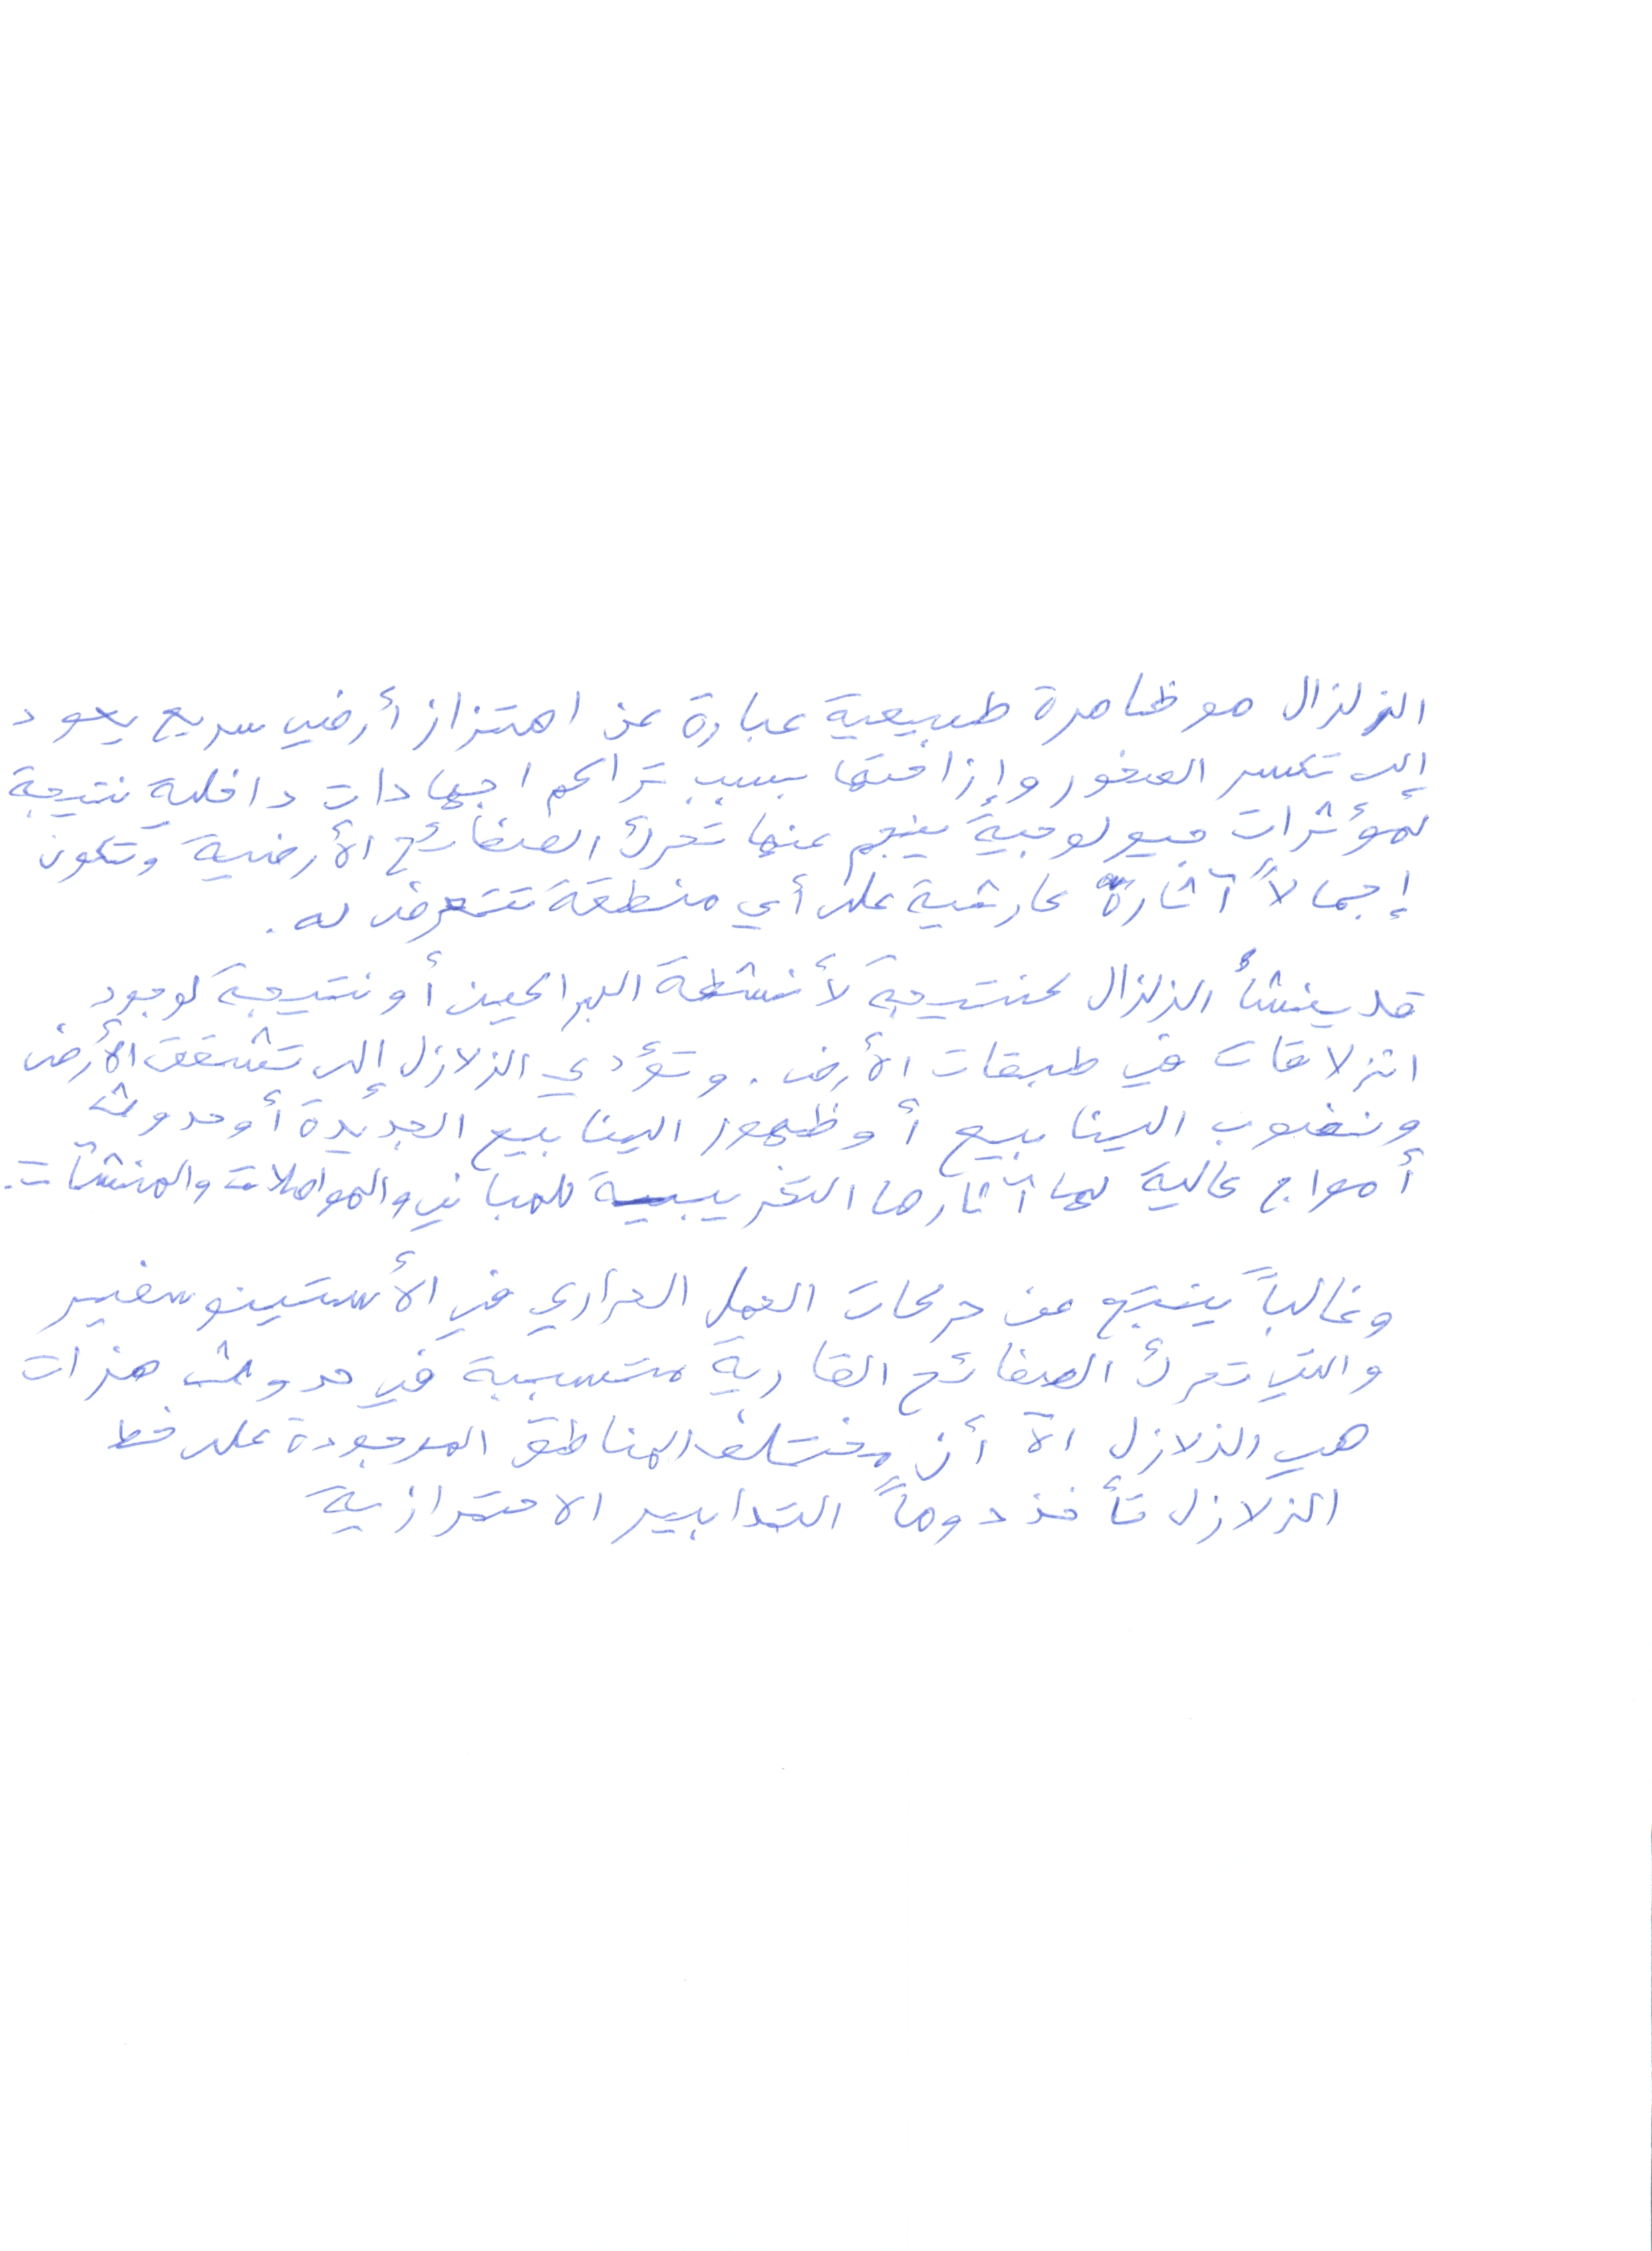 الزلزال هو ظاهرة طبيعية عبارة عن اهتزاز أرضي سريع يعود
إلى تكسر الصخور وإزاحتها بسبب تراكم اجهادات داخلية نتيجة
لمؤثرات جيولوجية ينجم عنها تحرك الصفائح الأرضية وتكون
إجمالاً آثاره كارثية على أي منطقة تتعرض له.
قد ينشأ الزلزال كنتيجة لأنشطة البراكين أو نتيجة لوجود
انزلاقات في طبقات الأرض. وتؤدي الزلازل إلى تشقق الأرض
ونضوب الينابيع أو ظهور الينابيع الجديدة أو حدوث
أمواج عالية لها آثارها التخريبية للمباني والمواصلات والمنشآت.
وغالباً ينتج عن حركات الحمل الحراري في الأستينوسفير
والتي تحرك الصفائح القارية متسببة في حدوث هزات
هي الزلازل الآ أن مختلف المناطق الموجودة على خط
الزلازل تأخذ دوماً التدابير الاحترازية